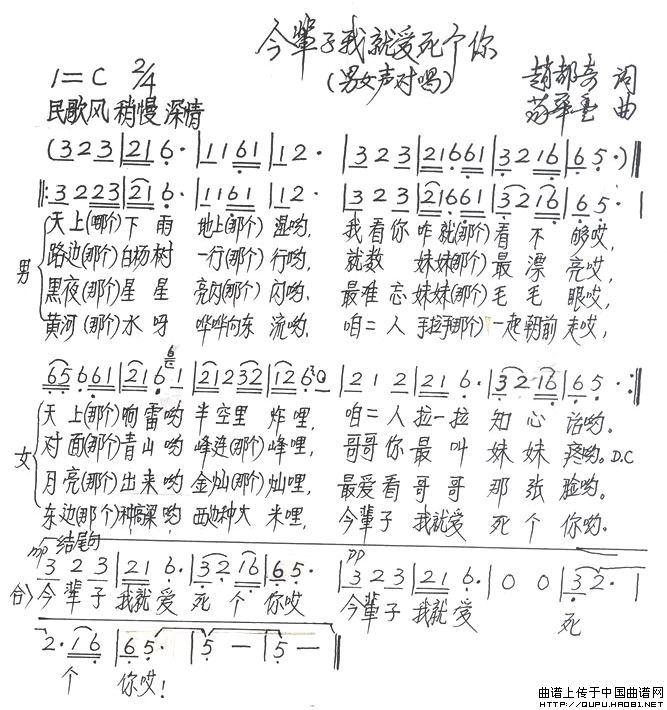 今辈子我就爱死个你
(男女声对唱)
1=C 2/4
赵都奇 词
曲
民歌风 稍慢 深情
(3 2 3 | 2 1 6· | 1 1 6 1 | 1 2· | 3 2 3 | 2 1 6 6 1 | 3 2 1 6 | 6 5·) ‖
‖: 3 2 2 3 | 2 1 6· | 1 1 6 1 | 1 2· | 3 2 3 | 2 1 6 6 1 | 3 2 1 6 | 6 5· |
男
天上(哪个)下雨 地上(那个)湿哟, 我看你咋就(那个)看不够哎,
路边(那个)白杨树 一行(那个)行哟, 就数妹妹(那个)最漂亮哎,
黑夜(那个)星星 亮闪(那个)闪哟, 最难忘妹妹(那个)毛毛眼哎,
黄河(那个)水呀 哗哗向东流哟, 咱二人手拉手(那个)一起朝前走哎,
6 5 6 6 1 | 2 1 6 6 1 | 2 1 2 3 2 | 1 2 6 3 0 | 2 1 2 | 2 1 6· | 3 2 1 6 | 6 5· :‖
女
天上(那个)响雷哟 半空里炸哩, 咱二人拉一拉知心话哟。
对面(那个)青山哟 峰连(那个)峰哩, 哥哥你最叫妹妹疼哟。D.C
月亮(那个)出来哟 金灿(那个)灿哩, 最爱看哥哥那张脸哟。
东边(那个)种高粱哟 西边种大米哩, 今辈子我就爱死个你哟。
mp 结尾句 pp
3 2 3 | 2 1 6· | 3 2 1 6 | 6 5· | 3 2 3 | 2 1 6· | 0 0 | 3 2· |
合〉今辈子我就爱死个你哎 今辈子我就爱 死
2· 1 6 | 6 5· | 5 — | 5 — ‖
个 你哎!
曲谱上传于中国曲谱网
HTTP://QUPU.HAO81.NET